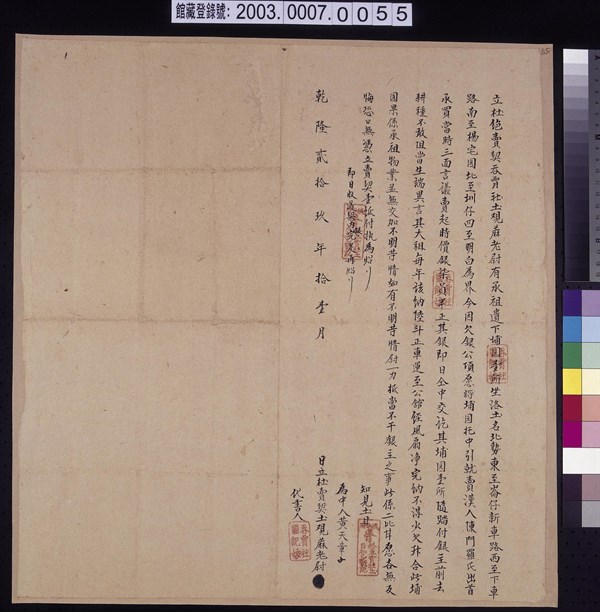 館藏登錄號: 2003.0007.0055
立杜絕賣契吞霄社土覡蔴老尉有承祖遺下埔園壹所坐落土名北勢東至崙仔新車路西至下車
路南至楊宅園北至圳仔四至明白為界今因欠銀公項愿將埔園托中引就賣漢人陳門羅氏出首
承買當時三面言議賣起時價銀 員 正其銀即日仝中交訖其埔園壹所隨踏付銀主前去
耕種不敢阻當生端異言其大租每年該納陸斗正車運至公館經風扇净完納不得少欠升合此埔
園果係承祖物業並無交加不明等情如有不明等情尉一力抵當不干銀主之事此係二比甘愿各無反
悔恐口無憑立賣契壹紙付執為炤
即日收 契 完足再炤
乾隆貳拾玖年拾壹月
日立杜賣契土覡蔴老尉
知見土
為中人黃天章
代書人